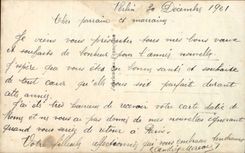 30 Décembre 1901
Cher parrain et marraine
Je viens vous présenter tous mes bons vœux
et souhaits de bonheur pour l'année nouvelle
J'espère que vous êtes en bonne santé et souhaite
de tout cœur qu'elle vous soit parfait durant
cette année.
J'ai été très heureux de recevoir votre carte datée de
et ne vous ai pas donné de mes nouvelles ignorant
quand vous seriez de retour à Paris.
Votre filleul affectionné qui vous embrasse tendrement